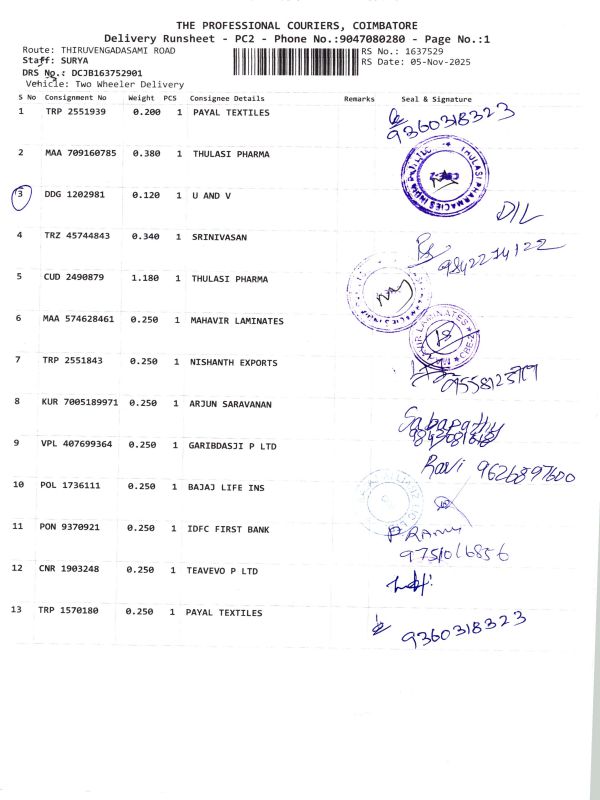 THE PROFESSIONAL COURIERS, COIMBATORE
Delivery Runsheet - PC2 - Phone No.:9047080280 - Page No.:1
Route: THIRUVENGADASAMI ROAD RS No.: 1637529
Staff: SURYA RS Date: 05-Nov-2025
DRS No.: DCJB163752901
Vehicle: Two Wheeler Delivery
S No Consignment No Weight PCS Consignee Details Remarks Seal & Signature
1 TRP 2551939 0.200 1 PAYAL TEXTILES 9360318323
2 MAA 709160785 0.380 1 THULASI PHARMA THULASI PHARMACIES INDIA
3 DDG 1202981 0.120 1 U AND V D/L
4 TRZ 45744843 0.340 1 SRINIVASAN 9842214122
5 CUD 2490879 1.180 1 THULASI PHARMA
6 MAA 574628461 0.250 1 MAHAVIR LAMINATES LAMINATES
7 TRP 2551843 0.250 1 NISHANTH EXPORTS
8 KUR 7005189971 0.250 1 ARJUN SARAVANAN Sabapathy
9 VPL 407699364 0.250 1 GARIBDASJI P LTD Ravi 9626897600
10 POL 1736111 0.250 1 BAJAJ LIFE INS
11 PON 9370921 0.250 1 IDFC FIRST BANK
9751016856
12 CNR 1903248 0.250 1 TEAVEVO P LTD
13 TRP 1570180 0.250 1 PAYAL TEXTILES 9360318323